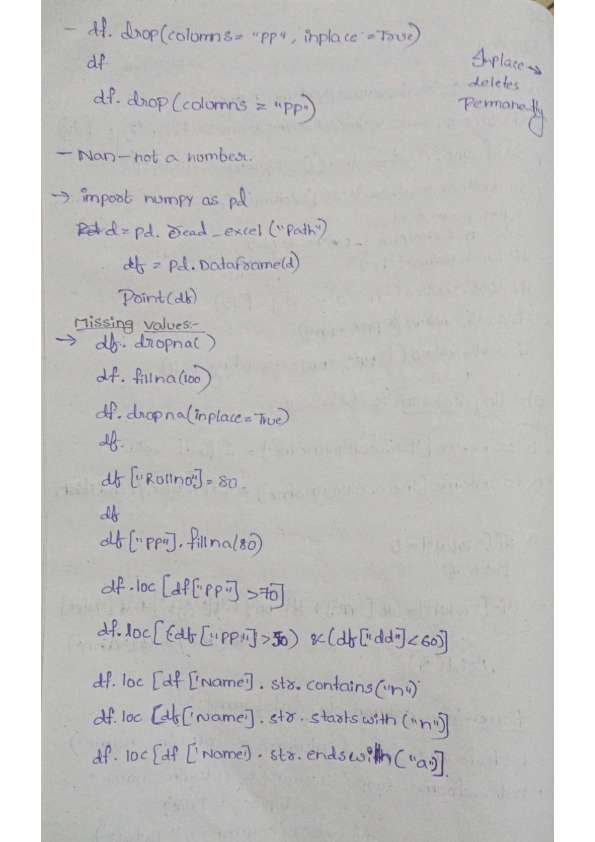 - df. drop(columns= "PP", inplace = True)
df
Inplace →
deletes
Permanatly
df. drop (columns = "PP")
- Nan - not a number.
→ import numpy as pd
d = pd. read_excel ("Path")
df = pd. DataFrame(d)
Print(df)
Missing values:-
→ df. dropna( )
df. fillna(100)
df. dropna(inplace = True)
df.
df ["Rollno"] = 80.
df
df ["PP"]. fillna(80)
df .loc [df["PP"] >70]
df. loc [(df ["PP"]>50) & (df["dd"]<60)]
df. loc [df ['Name'] . str. contains("n")
df. loc [df['Name'] . str. starts with ("n")]
df. loc [df ['Name') . str. endswith ("a")].